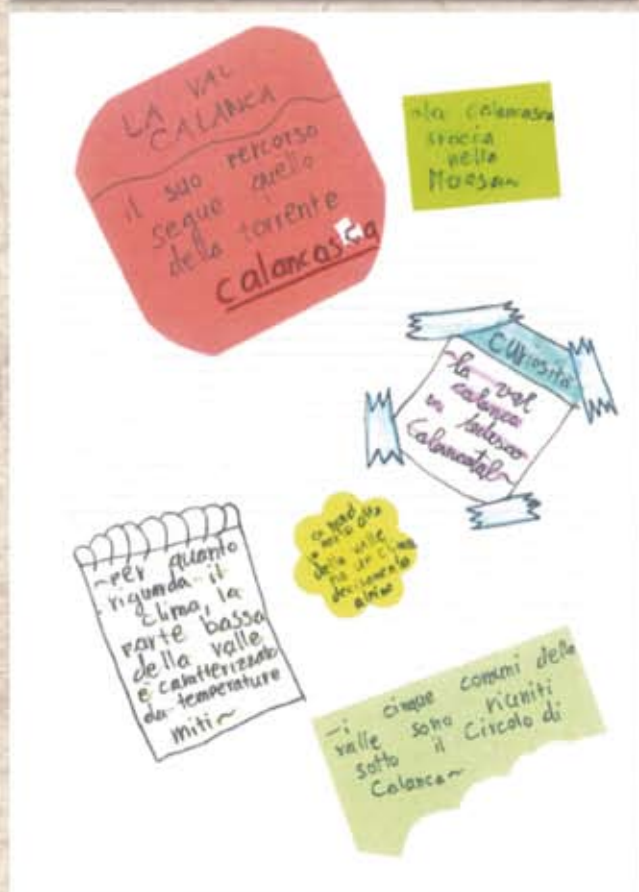 LA VAL
CALANCA
il suo percorso
segue quello
della torrente
calancasca
~la calancasca
sfocia
nella
Moesa~
Curiosità
~la val
calanca
in tedesco
Calancatal~
~per quanto
riguarda il
clima, la
parte bassa
della valle
è caratterizzata
da temperature
miti~
alta
della valle
ha un clima
decisamente
alpino
~i cinque comuni della
valle sono riuniti
sotto il Circolo di
Calanca~